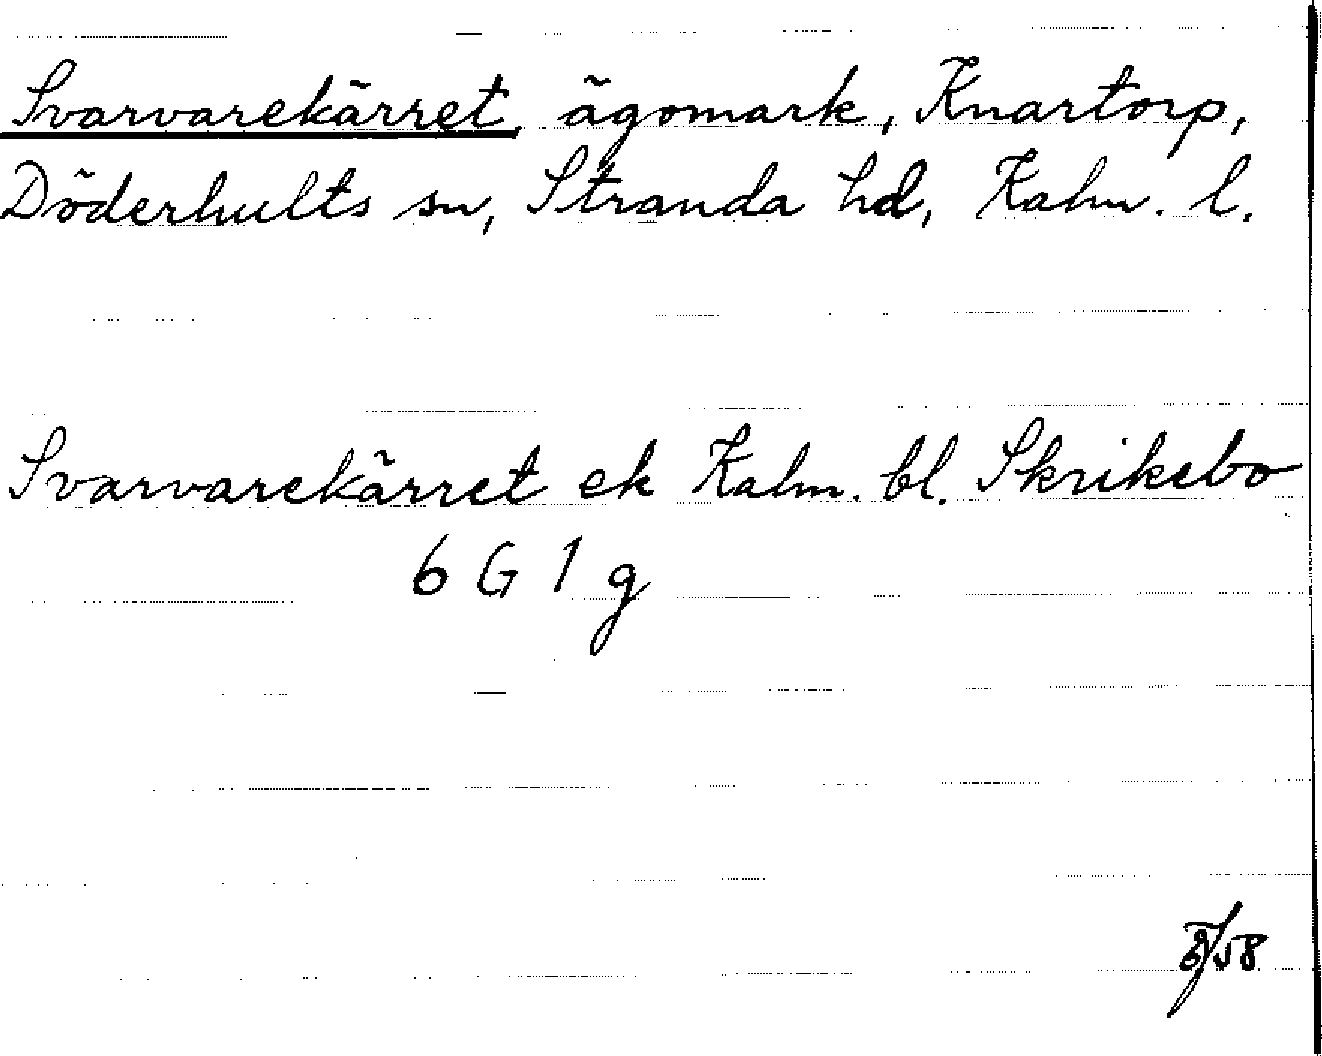 Svarvarekärret, ägomark, Knartorp,
Döderhults sn, Stranda hd, Kalm. l.
Svarvarekärret ek Kalm. bl. Skrikebo
6 G 1 g
8/58